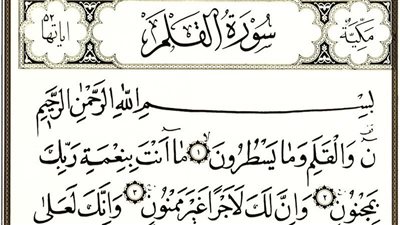 مكية سورة القلم اياتها ٥٢
بِسْمِ اللهِ الرَّحْمٰنِ الرَّحِيْمِ
نٓ وَالْقَلَمِ وَمَا يَسْطُرُونَ ١ مَا أَنْتَ بِنِعْمَةِ رَبِّكَ
بِمَجْنُونٍ ٢ وَإِنَّ لَكَ لَأَجْرًا غَيْرَ مَمْنُونٍ ٣ وَإِنَّكَ لَعَلَى